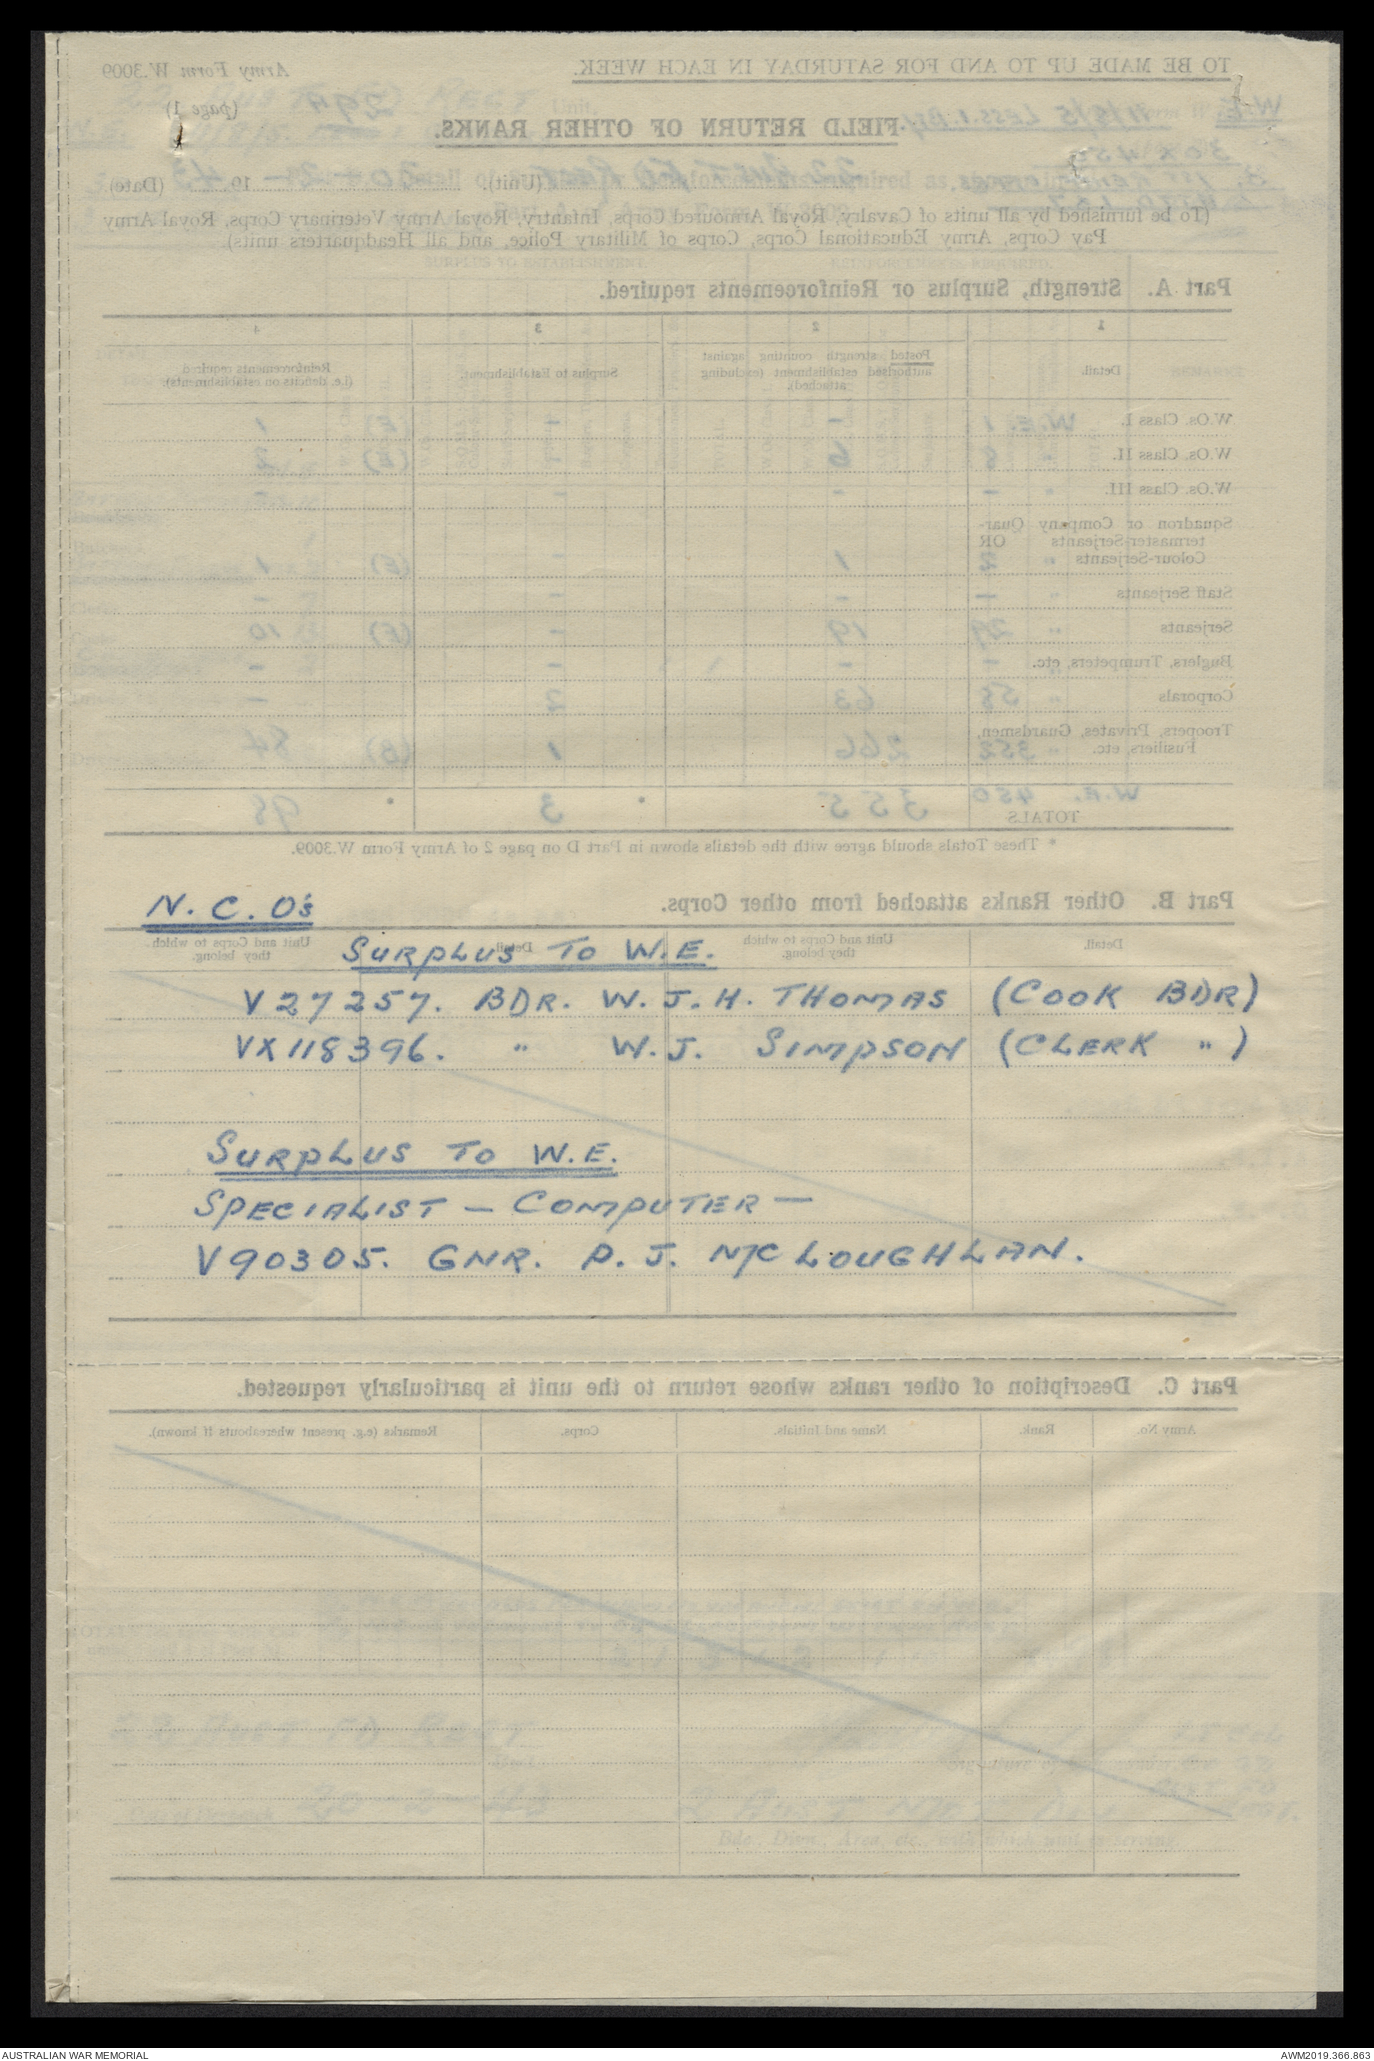 N.C.O's
SURPLUS TO W.E.
V27257. BDR. W.J.H. THOMAS (COOK BDR)
VX118396. " W.J. SIMPSON (CLERK ")
SURPLUS TO W.E.
SPECIALIST - COMPUTER -
V90305. GNR. P.J. McLOUGHLAN.
TO BE MADE UP TO AND FOR SATURDAY IN EACH WEEK.
Army Form W.3009
(page 1)
FIELD RETURN OF OTHER RANKS.
(Unit)
19 43 (Date)
(To be furnished by all units of Cavalry, Royal Armoured Corps, Infantry, Royal Army Veterinary Corps, Royal Army
Pay Corps, Army Educational Corps, Corps of Military Police, and all Headquarters units).
Part A. Strength, Surplus or Reinforcements required.
1 2 3 4
Detail.
Posted strength counting against
authorised establishment (excluding
attached).
Surplus to Establishment.
Reinforcements required
(i.e. deficits on establishments).
W.Os. Class I. W.E. 1 - - (E) 1
W.Os. Class II. " 8 6 - (E) 2
W.Os. Class III. " - - - -
Squadron or Company Quar-
termaster-Serjeants OR
Colour-Serjeants " 2 1 - (E) 1
Staff Serjeants " - - - -
Serjeants " 29 19 - (E) 10
Buglers, Trumpeters, etc. " - - - -
Corporals " 58 63 2 -
Troopers, Privates, Guardsmen,
Fusiliers, etc. " 352 266 1 (B) 84
W.E. 450
TOTALS 355 3 98
* These Totals should agree with the details shown in Part D on page 2 of Army Form W.3009.
Part B. Other Ranks attached from other Corps.
Detail.
Unit and Corps to which
they belong.
Detail.
Unit and Corps to which
they belong.
Part C. Description of other ranks whose return to the unit is particularly requested.
Army No. Rank. Name and Initials. Corps. Remarks (e.g. present whereabouts if known).
AUSTRALIAN WAR MEMORIAL
AWM2019.366.863